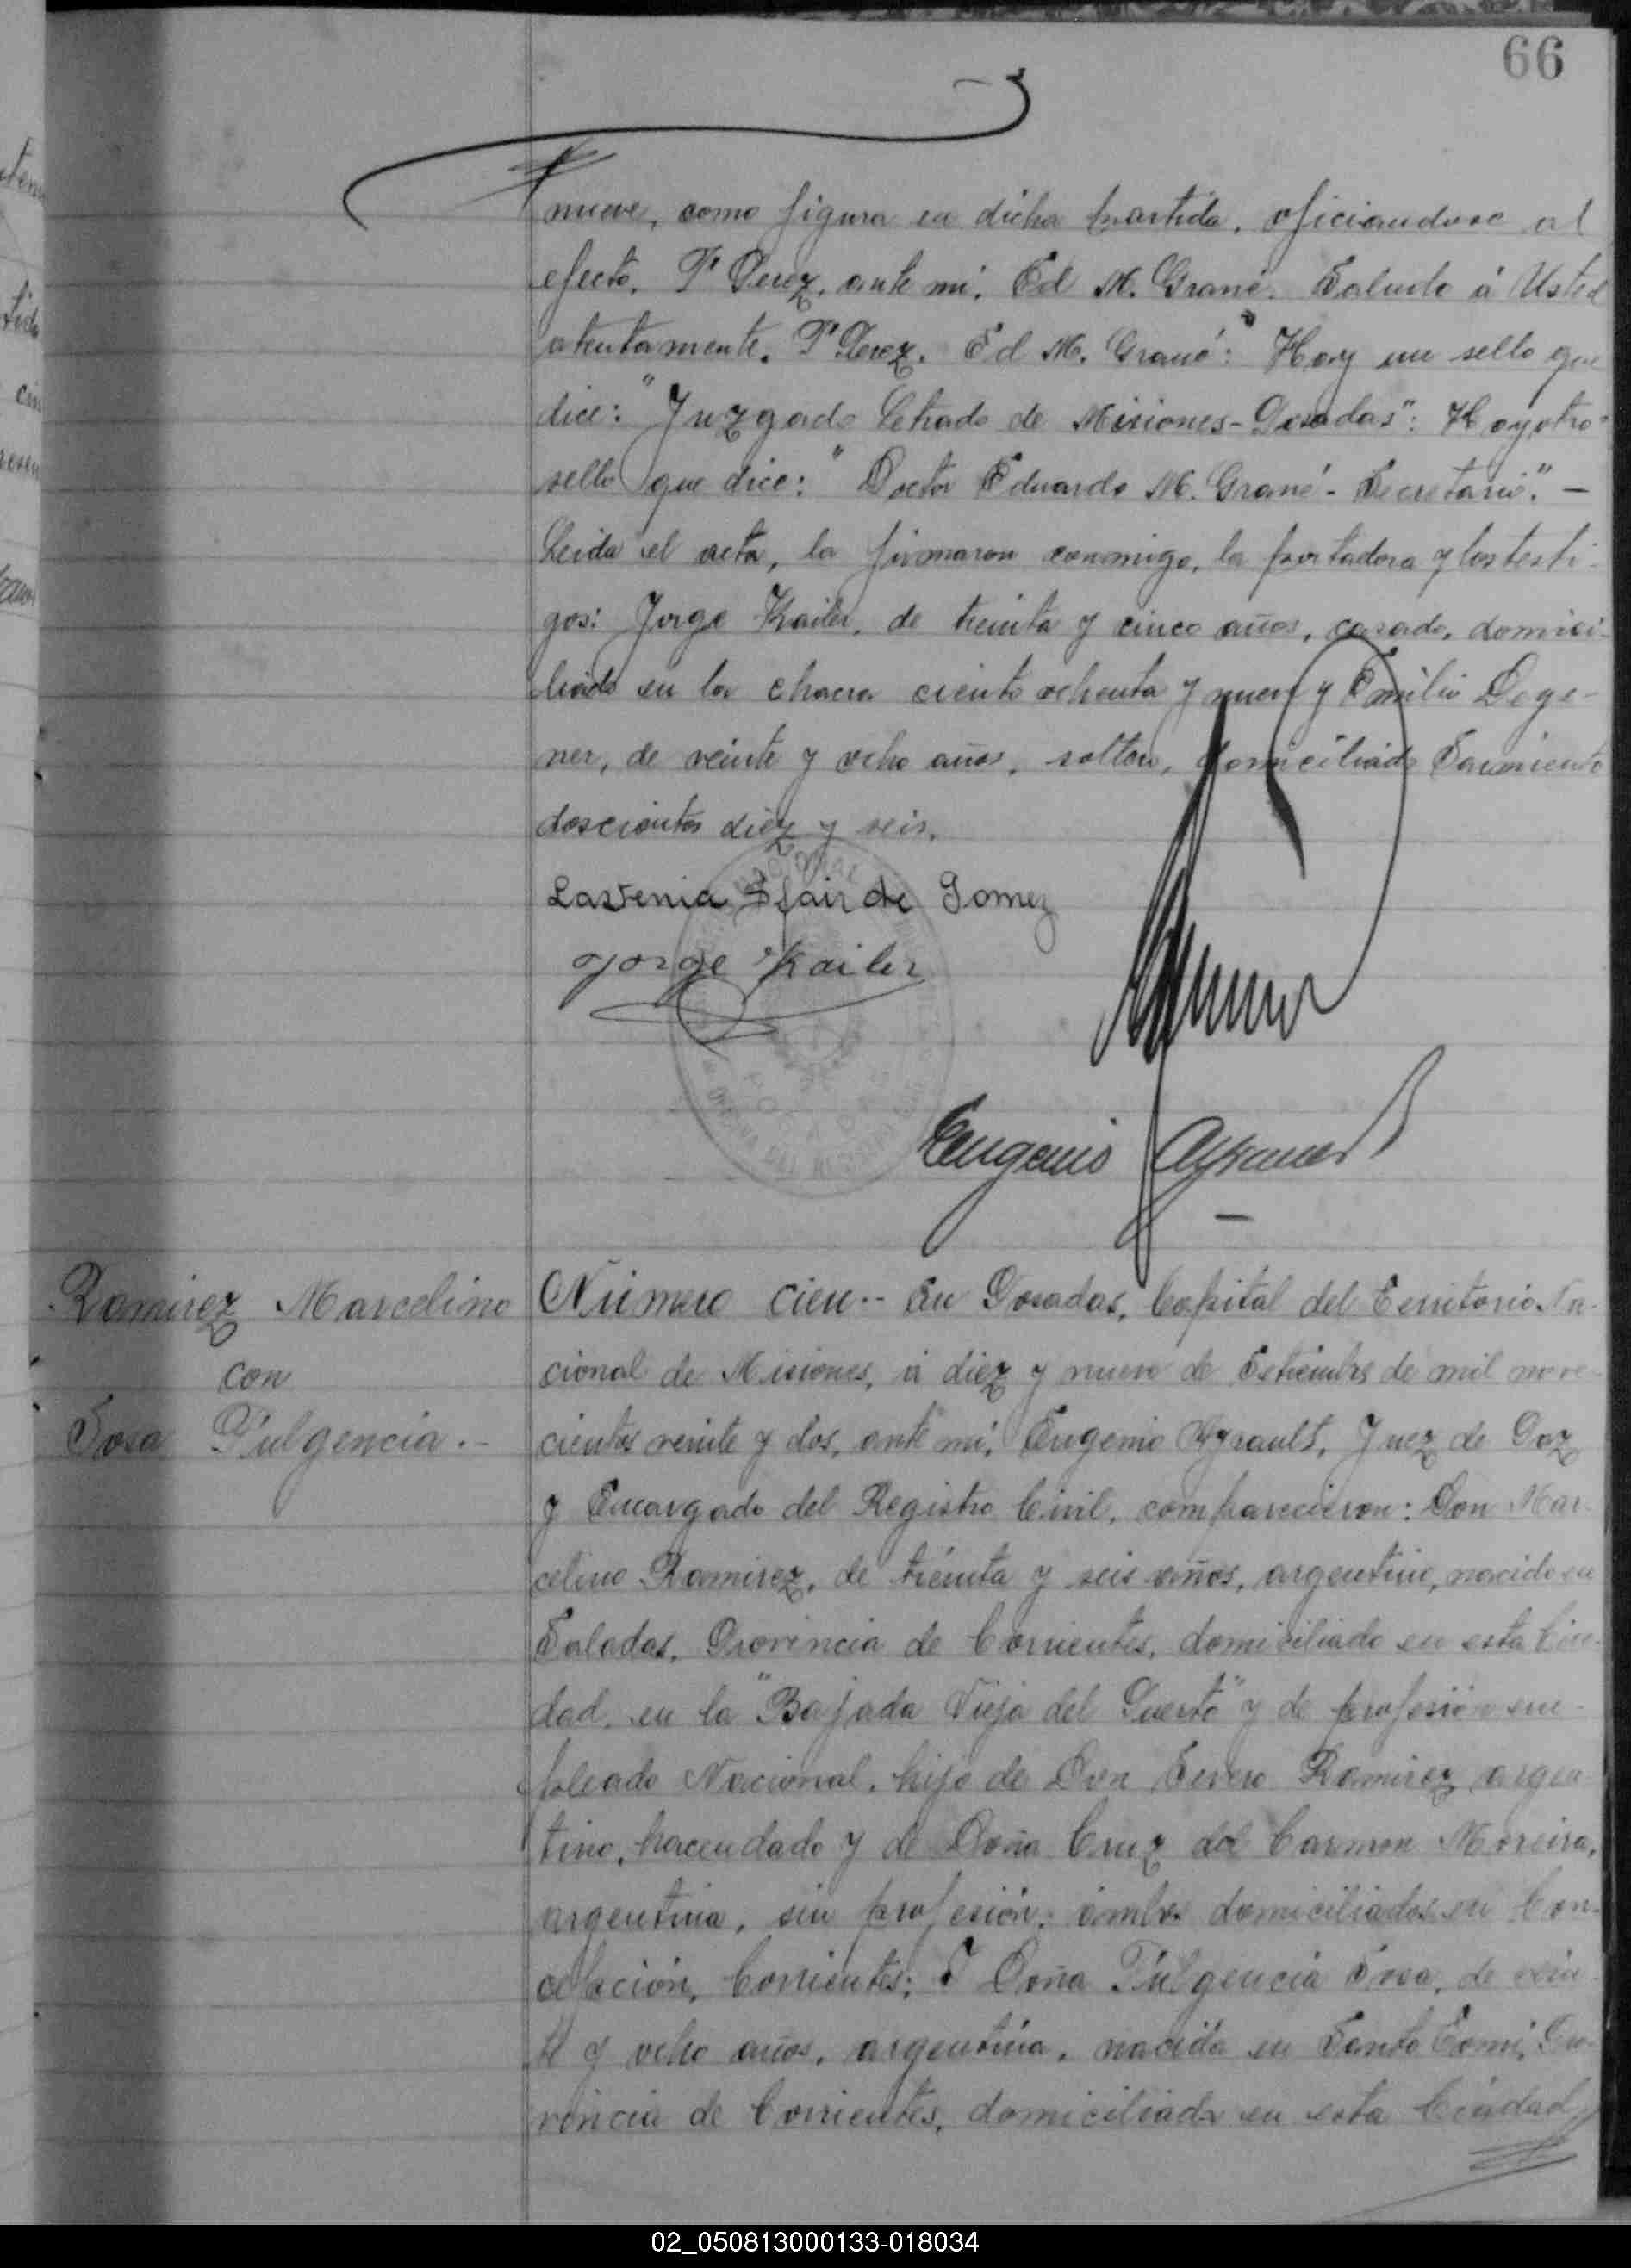 66
nueve, como figura en dicha partida, oficiandose al
efecto. P. Perez. ante mi. Ed M. Grané. Saludo á Usted
atentamente. P. Perez. Ed M. Grané": Hay un sello que
dice: "Juzgado Letrado de Misiones-Posadas": Hay otro
sello que dice: "Doctor Eduardo M. Grané - Secretario". —
Leida el acta, la firmaron conmigo, la portadora y los testi-
gos: Jorge Kailer, de treinta y cinco años, casado, domici-
liado en la chacra ciento ochenta y nueve y Emilio Dege-
ner, de veinte y ocho años, soltero, domiciliado Sarmiento
doscientos diez y seis.
Lastenia Sfair de Gomez
Jorge Kailer
Eugenio Ayrault
Ramirez Marcelino
con
Sosa Fulgencia.-
Número cien.- En Posadas, Capital del Territorio Na-
cional de Misiones, á diez y nueve de Setiembre de mil nove-
cientos veinte y dos, ante mi, Eugenio Ayrault, Juez de Paz
y Encargado del Registro Civil, comparecieron: Don Mar-
celino Ramirez, de treinta y seis años, argentino, nacido en
Saladas, Provincia de Corrientes, domiciliado en esta Ciu-
dad, en la "Bajada Vieja del Puerto" y de profesión em-
pleado Nacional, hijo de Don Severo Ramirez, argen-
tino, hacendado y de Doña Cruz del Carmen Moreira,
argentina, sin profesión, ambos domiciliados en Con-
cepción, Corrientes; Y Doña Fulgencia Sosa, de vein-
te y ocho años, argentina, nacida en Santo Tomé, Pro-
vincia de Corrientes, domiciliada en esta Ciudad,
02_050813000133-018034